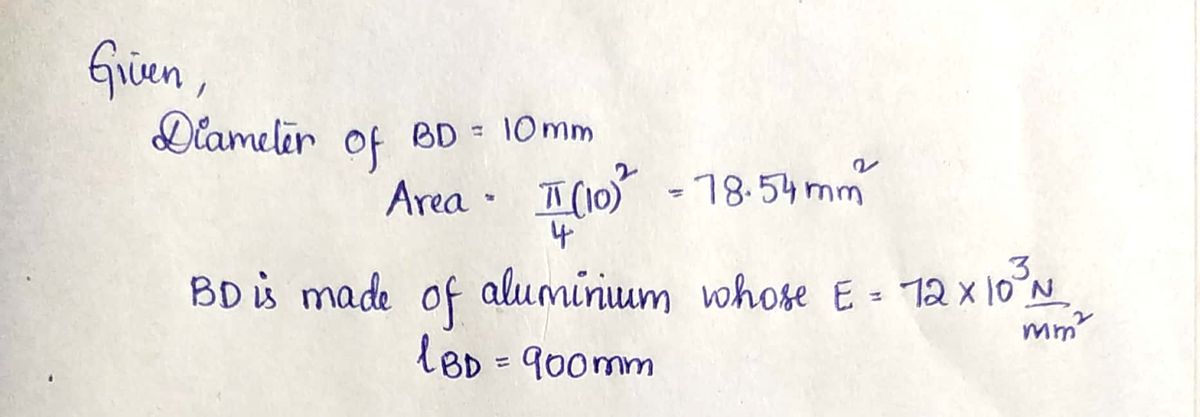 Given,
Diameter of BD = 10mm
Area = π/4 (10)² = 78.54 mm²
BD is made of aluminium whose E = 72 x 10³ N/mm²
lBD = 900mm